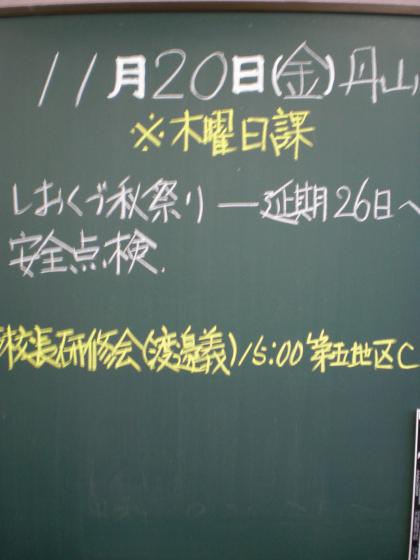 11月20日(金)丹山
※木曜日課
しおくづ秋祭り―延期26日へ
安全点検.
校長研修会(渡邉義)15:00 第五地区C